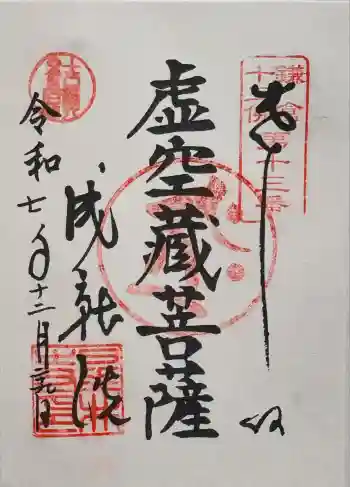 奉拝
鎌倉第十三番
十三佛
虚空蔵菩薩
成就院
令和七年十二月